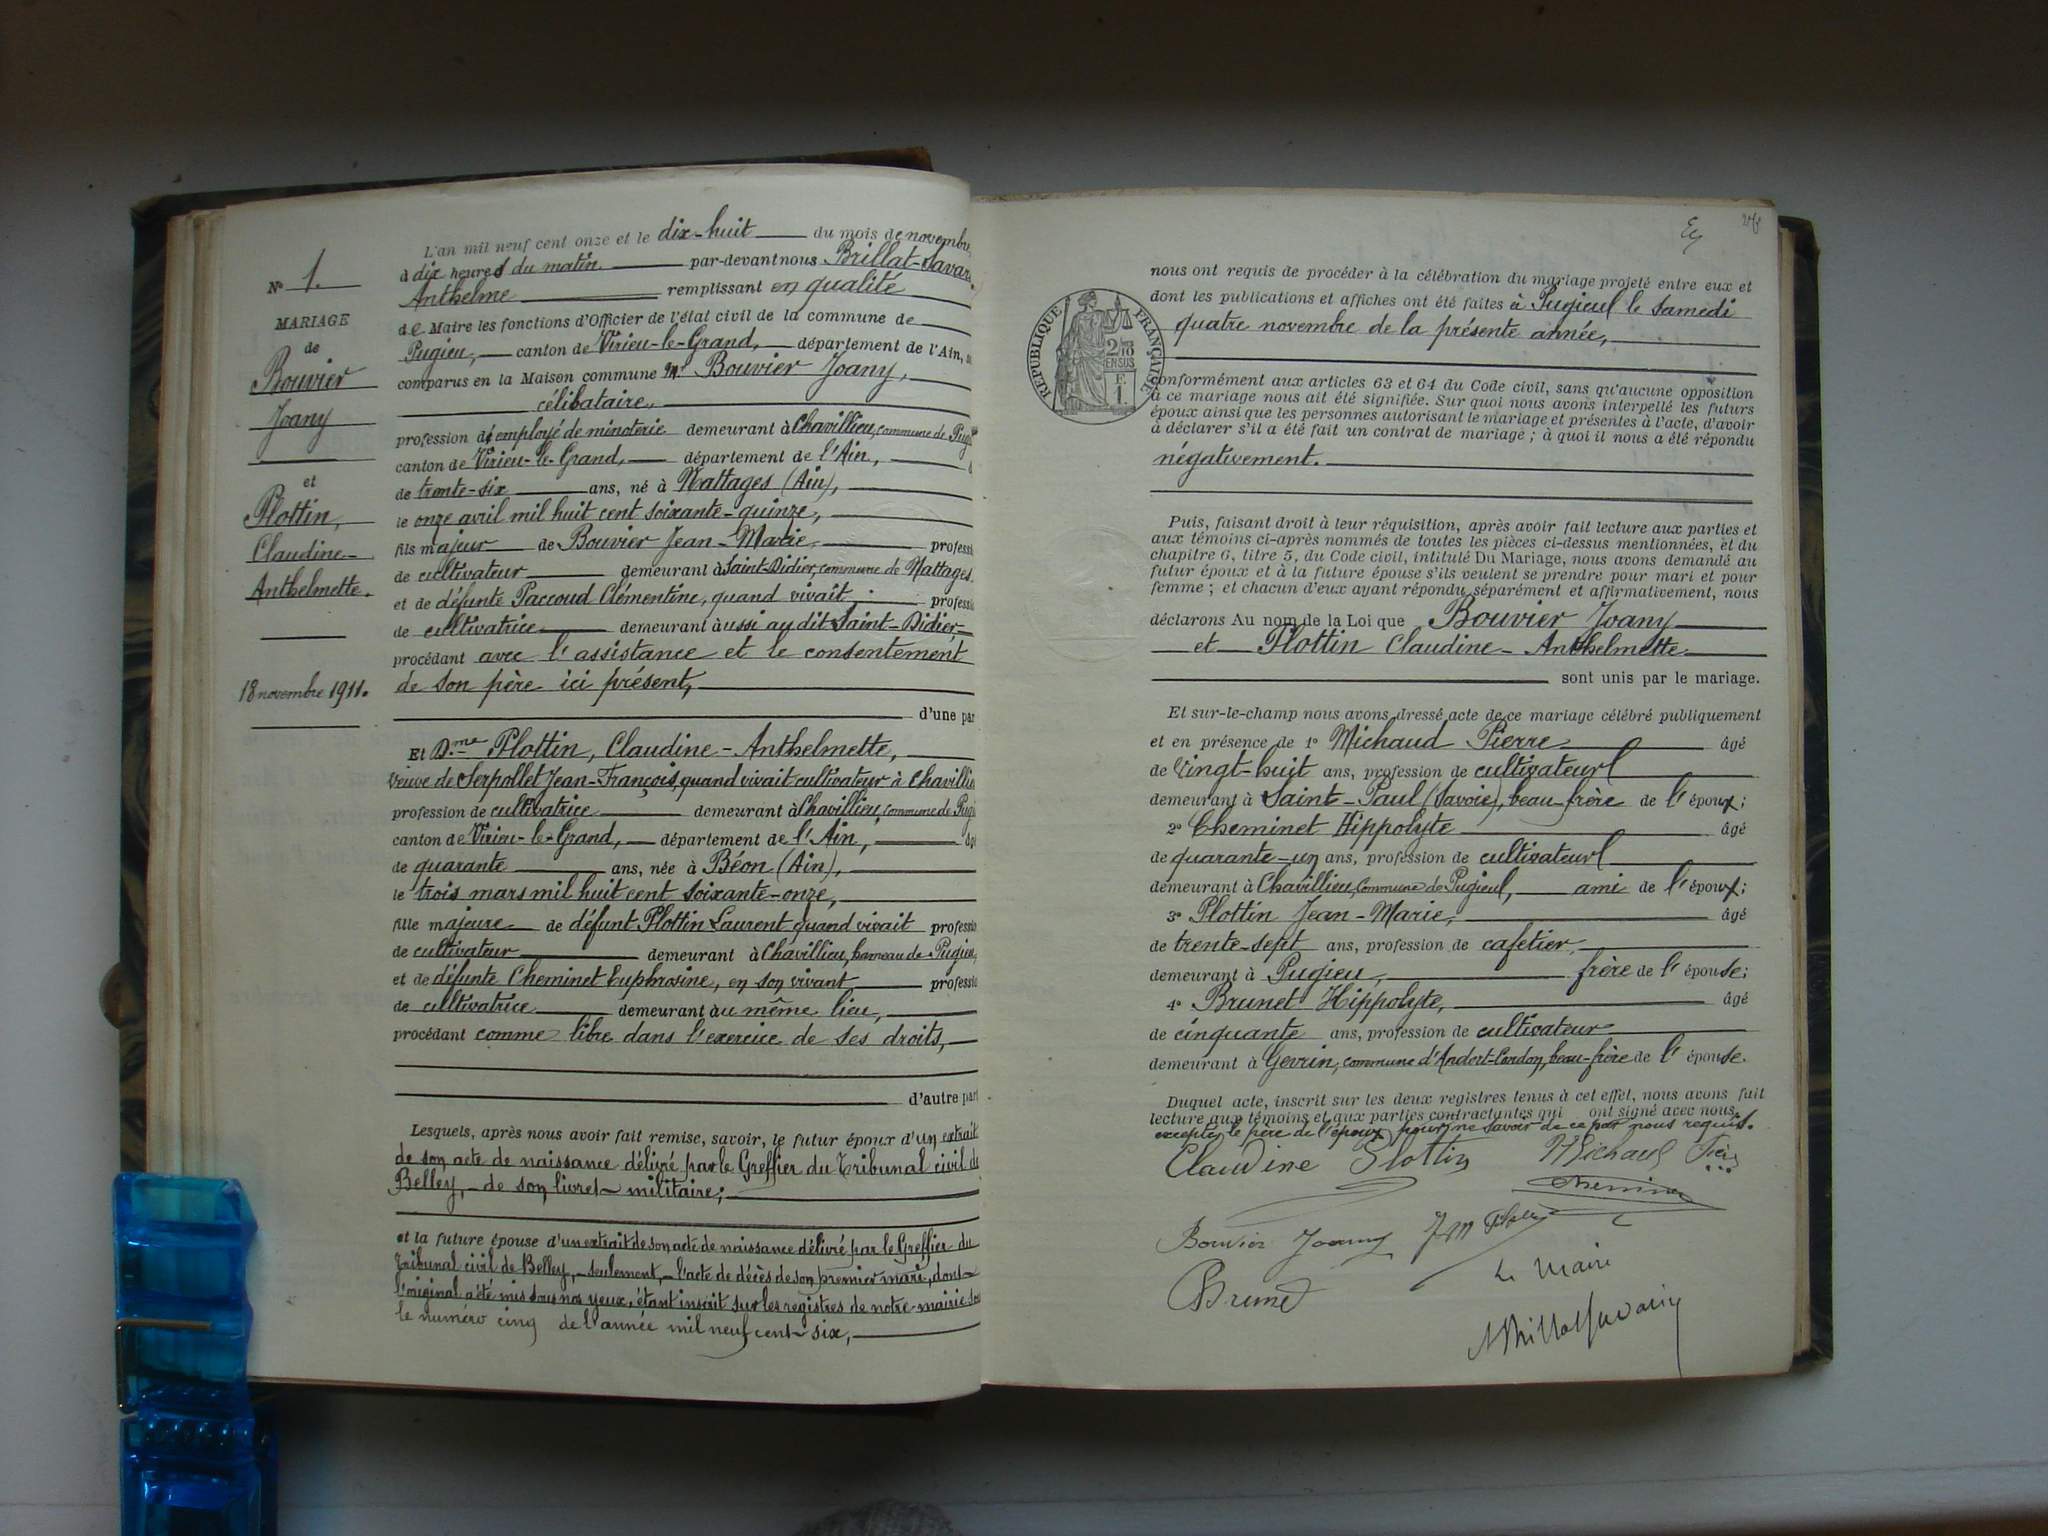 N° 1.
MARIAGE
de
Bouvier
Joany
et
Plottin,
Claudine-
Anthelmette.
18 novembre 1911.
L'an mil neuf cent onze et le dix-huit du mois de novembre
à dix heures du matin par-devant nous Brillat-Savar
Anthelme remplissant en qualité
de Maire les fonctions d'Officier de l'état civil de la commune de
Pugieu, canton de Virieu-le-Grand, département de l'Ain,
comparus en la Maison commune Mr Bouvier Joany,
célibataire,
profession d'employé de minoterie demeurant à Chavillieu, commune de Pug
canton de Virieu-le-Grand, département de l'Ain,
de trente-six ans, né à Nattages (Ain),
le onze avril mil huit cent soixante-quinze,
fils majeur de Bouvier Jean-Marie professi
de cultivateur demeurant à Saint-Didier, commune de Nattages
et de défunte Paccoud Clémentine, quand vivait professi
de cultivatrice demeurant aussi au dit Saint-Didier
procédant avec l'assistance et le consentement
de son père ici présent,
d'une par
Et Dme Plottin, Claudine-Anthelmette,
veuve de Serpollet Jean-François, quand vivait cultivateur à Chavillieu
profession de cultivatrice demeurant à Chavillieu, commune de Pugi
canton de Virieu-le-Grand, département de l'Ain,
de quarante ans, née à Béon (Ain),
le trois mars mil huit cent soixante-onze,
fille majeure de défunt Plottin Laurent quand vivait professi
de cultivateur demeurant à Chavillieu, hameau de Pugieu,
et de défunte Cheminet Euphrosine, en son vivant professi
de cultivatrice demeurant au même lieu,
procédant comme libre dans l'exercice de ses droits,
d'autre part
Lesquels, après nous avoir fait remise, savoir, le futur époux d'un extrait
de son acte de naissance délivré par le Greffier du Tribunal civil de
Belley, - de son livret militaire;
et la future épouse d'un extrait de son acte de naissance délivré par le Greffier du
Tribunal civil de Belley, - seulement, - l'acte de décès de son premier mari, dont
l'original a été mis sous nos yeux, étant inscrit sur les registres de notre mairie sous
le numéro cinq de l'année mil neuf cent six,
RÉPUBLIQUE FRANÇAISE
2/10
EN SUS
F.
1.
nous ont requis de procéder à la célébration du mariage projeté entre eux et
dont les publications et affiches ont été faites à Pugieu le samedi
quatre novembre de la présente année,
conformément aux articles 63 et 64 du Code civil, sans qu'aucune opposition
à ce mariage nous ait été signifiée. Sur quoi nous avons interpellé les futurs
époux ainsi que les personnes autorisant le mariage et présentes à l'acte, d'avoir
à déclarer s'il a été fait un contrat de mariage ; à quoi il nous a été répondu
négativement.
Puis, faisant droit à leur réquisition, après avoir fait lecture aux parties et
aux témoins ci-après nommés de toutes les pièces ci-dessus mentionnées, et du
chapitre 6, titre 5, du Code civil, intitulé Du Mariage, nous avons demandé au
futur époux et à la future épouse s'ils veulent se prendre pour mari et pour
femme ; et chacun d'eux ayant répondu séparément et affirmativement, nous
déclarons Au nom de la Loi que Bouvier Joany
et Plottin Claudine-Anthelmette
sont unis par le mariage.
Et sur-le-champ nous avons dressé acte de ce mariage célébré publiquement
et en présence de 1° Michaud Pierre âgé
de vingt-huit ans, profession de cultivateur
demeurant à Saint-Paul (Savoie), beau-frère de l'époux;
2° Cheminet Hippolyte âgé
de quarante-un ans, profession de cultivateur
demeurant à Chavillieu, Commune de Pugieu, ami de l'époux;
3° Plottin Jean-Marie, âgé
de trente-sept ans, profession de cafetier,
demeurant à Pugieu, frère de l'épouse;
4° Brunet Hippolyte, âgé
de cinquante ans, profession de cultivateur
demeurant à Gevrin, commune d'Andert-Condon, beau-frère de l'épouse.
Duquel acte, inscrit sur les deux registres tenus à cet effet, nous avons fait
lecture aux témoins et aux parties contractantes qui ont signé avec nous,
excepté le père de l'époux pour ne savoir de ce par nous requis.
Claudine Plottin Michaud
Cheminet
Bouvier Joany J M
Brunet
Le Maire
ABrillatSavarin